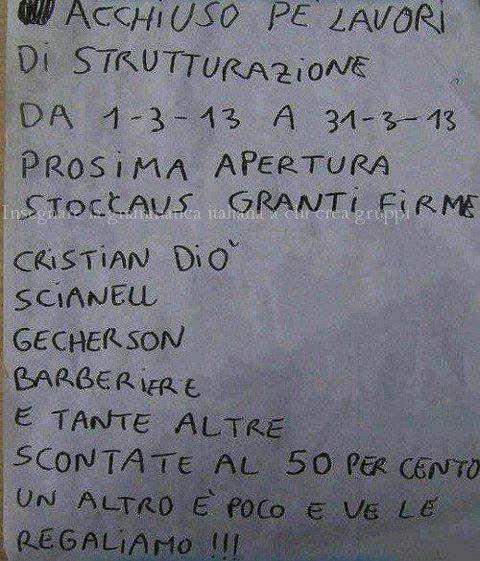 ACCHIUSO PE LAVORI
Di STRUTTURAZIONE
DA 1-3-13 A 31-3-13
PROSIMA APERTURA
STOCCAUS GRANTI FIRME
Insegnare la grammatica italiana a chi crea gruppi
CRISTIAN DiO'
SCIANELL
GECHERSON
BARBERIERE
E TANTE ALTRE
SCONTATE AL 50 PER CENTO
UN ALTRO E' POCO E VE LE
REGALIAMO !!!